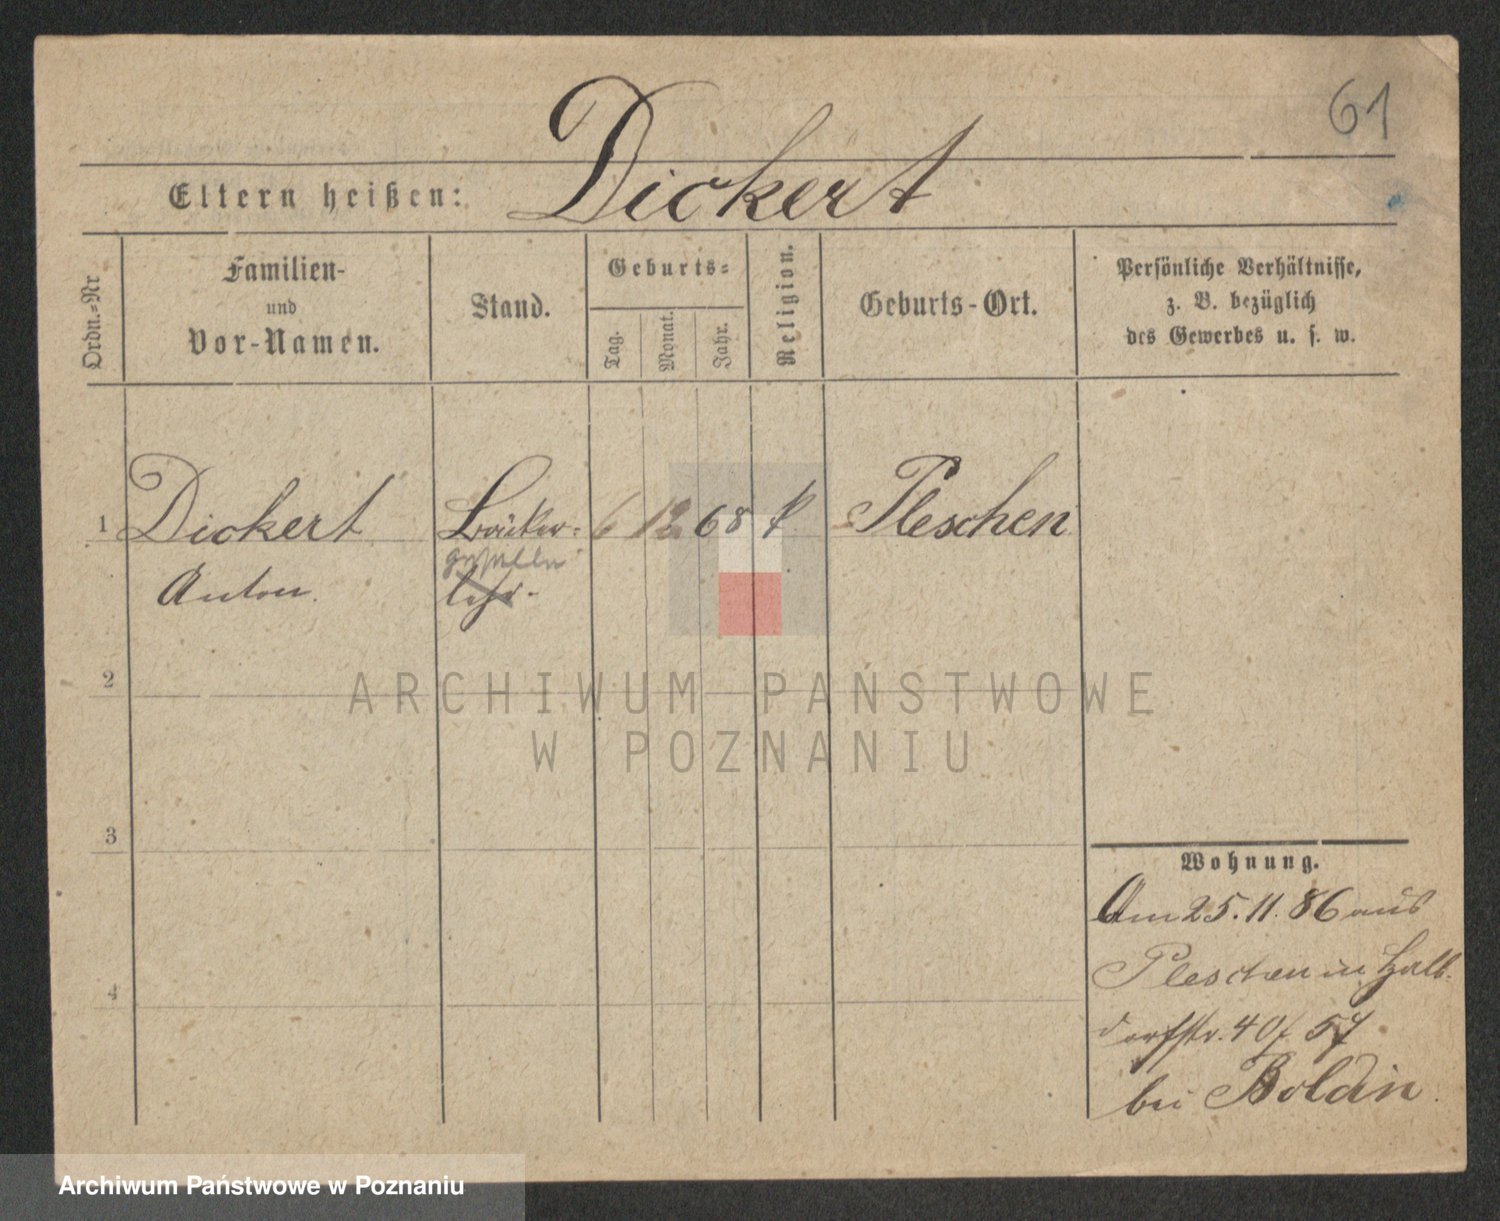 61
Dickert
Eltern heißen:
Ordn.=Nr
Familien-
und
Vor-Namen.
Stand.
Geburts=
Tag.
Monat.
Jahr.
Religion.
Geburts-Ort.
Persönliche Verhältnisse,
z. B. bezüglich
des Gewerbes u. s. w.
1 Dickert Bäcker= 6 12 68 k Pleschen
geselle
Anton. lehr-
2
ARCHIWUM PAŃSTWOWE
W POZNANIU
3
Wohnung.
Am 25.11.86 aus
Pleschen in Halb-
4
dorfstr. 40/57
bei Boldin.
Archiwum Państwowe w Poznaniu